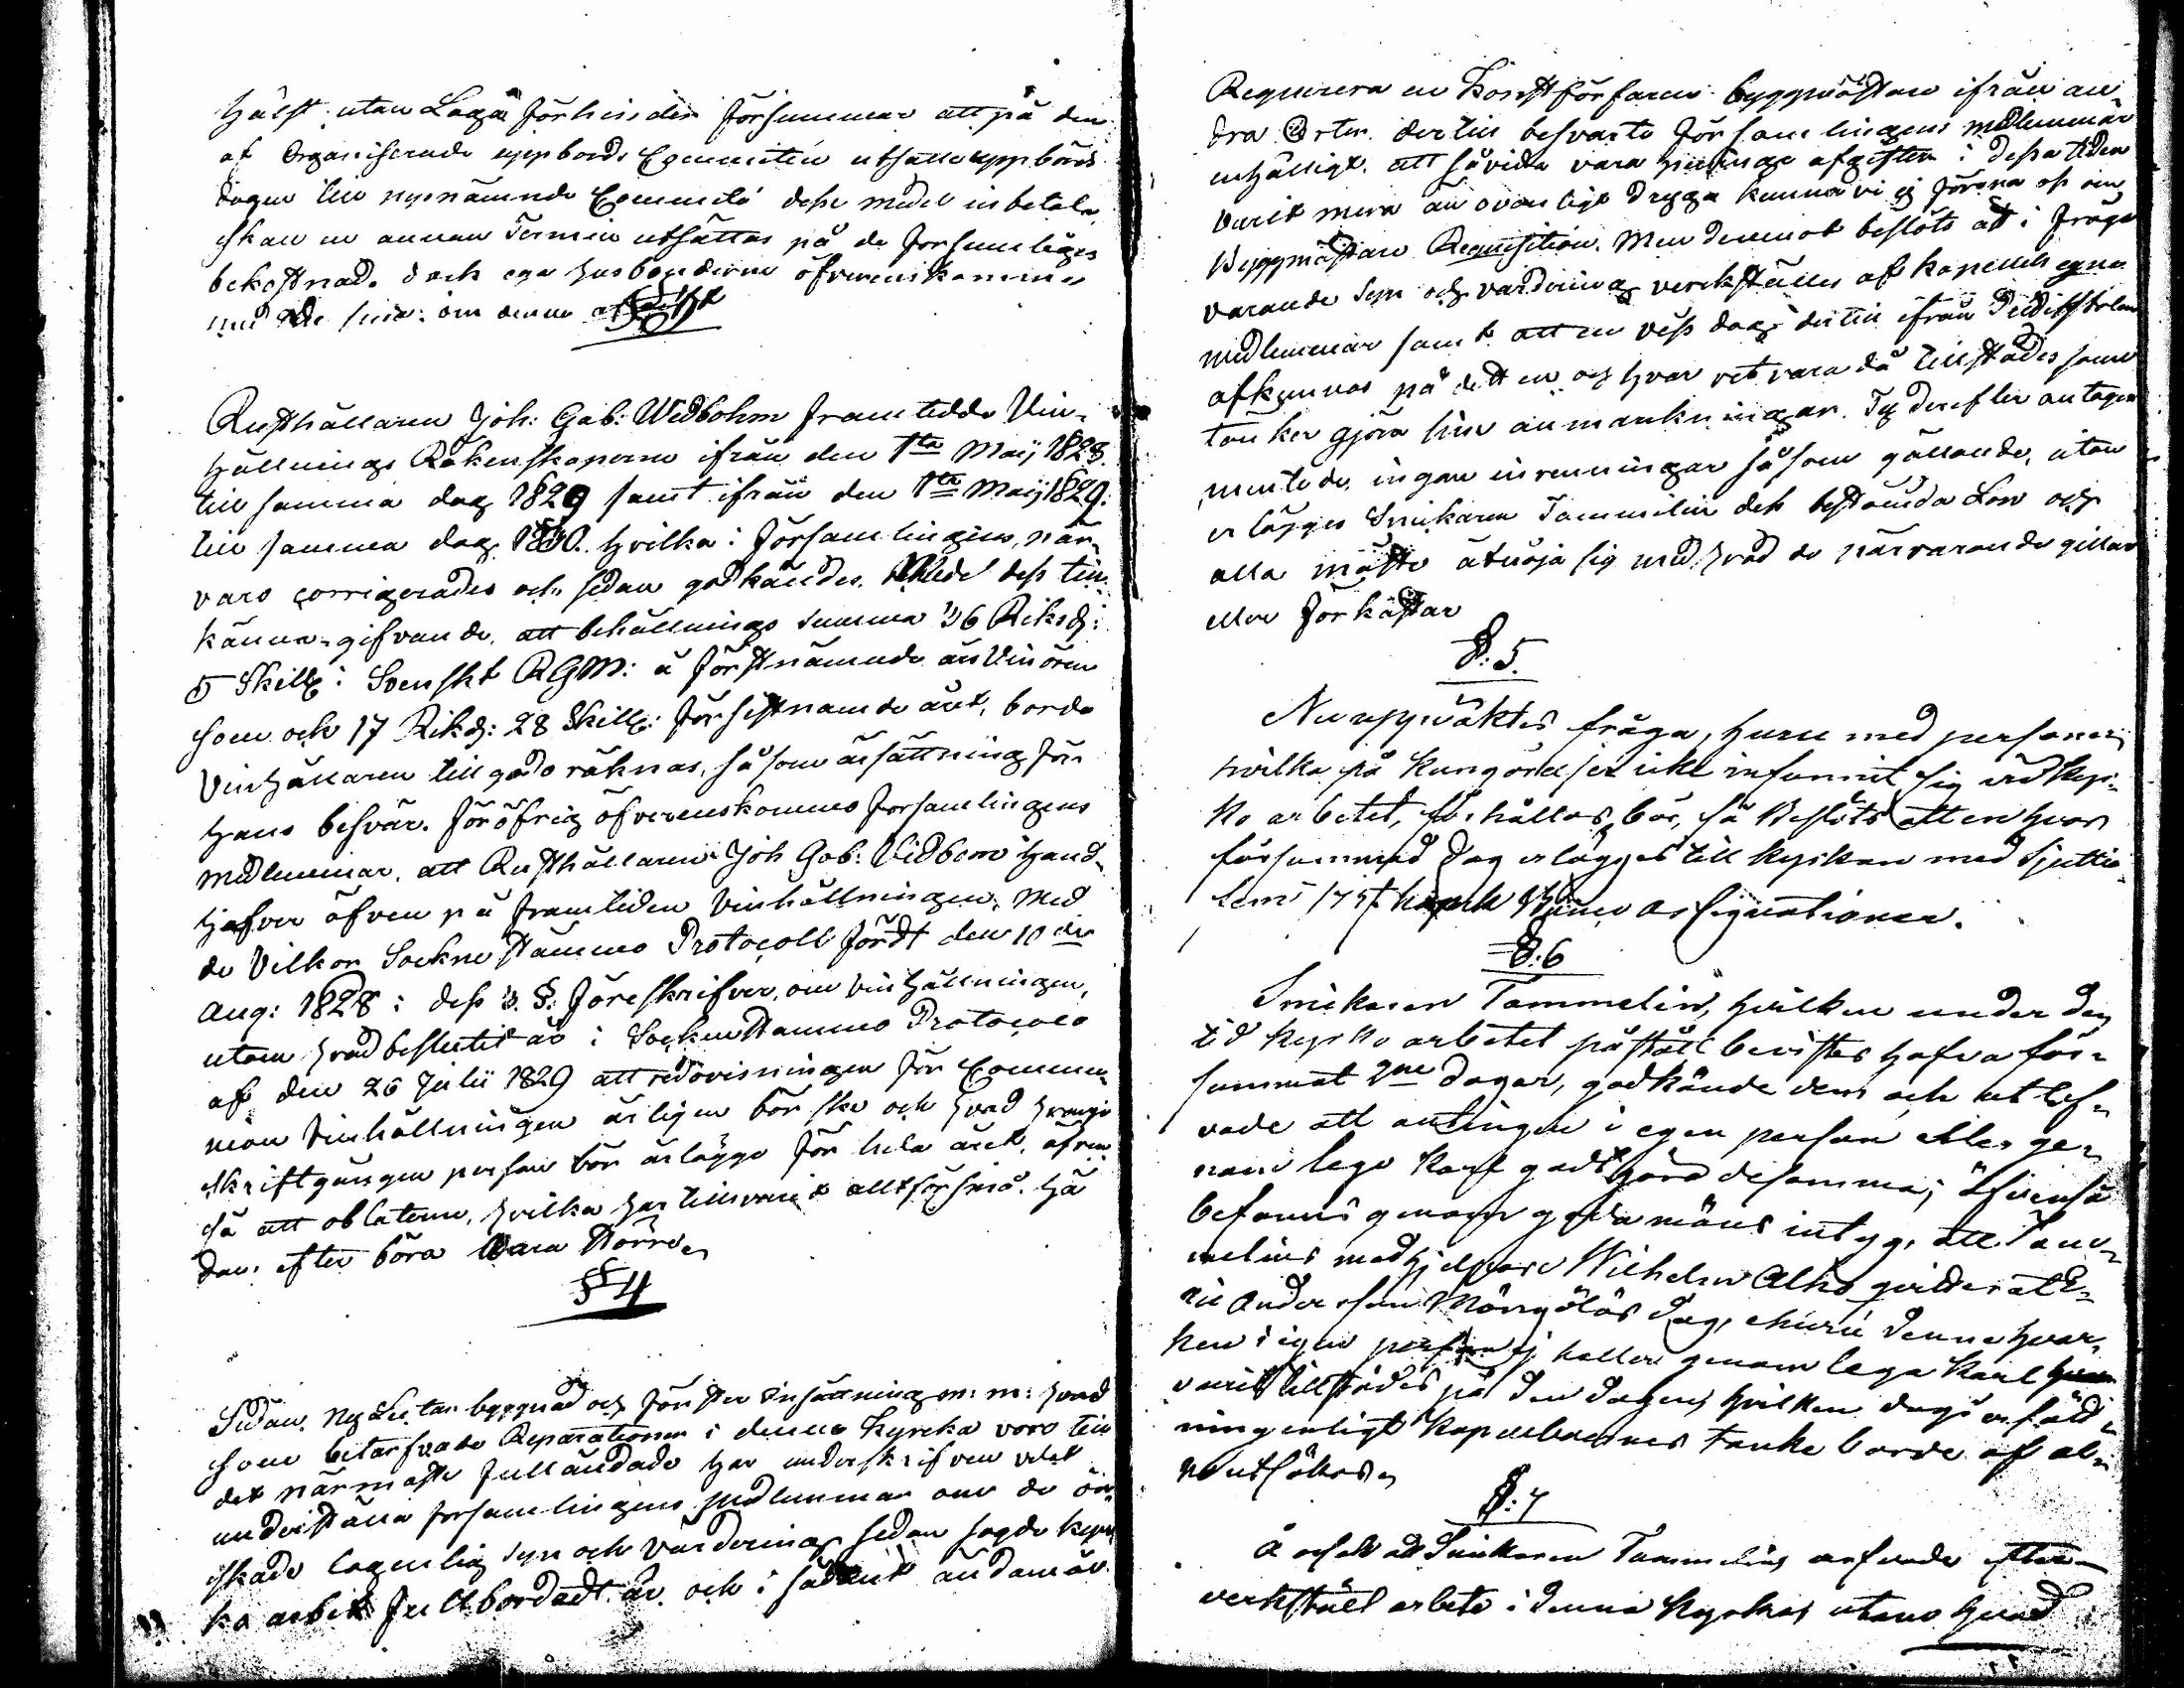 hälst utan Laga förhinder försummar att på den
af Organiserade uppbords Committén utsatte uppbörds
dagen till nysnämnde Committé desse medel inbetala
skall en annan Termin utsättas på de försumliges
bekostnad. dock ega husbönderne öfverenskomma
med sine om denne afgift
Rusthållaren Joh: Gab: Widbohm framtedde Vin-
hållnings Räkenskaperne ifrån den 1sta Maij 1828.
till samma dag 1829 samt ifrån den 1sta Maij 1829.
till samma dag 1830. hvilka i Församlingens när-
varo corrigerades och sedan godkändes. Med dess till-
känna-gifvande, att behållnings Summa 36 Riksd:
5 Skillg: Svenskt RGM: å förstnämnde års Vinören
som och 17 Riksd: 28 Skillg: för sistnämde året, borde
Vinhållaren till godo räknas, såsom ersättning för
hans besvär. för öfrig öfverenskommo Församlingens
medlemmar, att Rusthållaren Joh Gab: Vidbom hand-
hafver äfven på framtiden Vinhållningen, med
de Vilkor Sockne Stämmo Protocoll fördt den 10de
Aug: 1828 i dess 3. §. föreskrifver, om Vinhållningen,
utom hvad beslutit är i Sockne Stämmo Protocoll
af den 26 Julii 1829 att redovisningen för Commu-
nion Vinhållningen årligen bör ske och hvad hvarje
skriftgången person bör ärlägga för hela året, äfven
så att oblaterne, hvilka har tills varit allt för små. hä
dan efter böra vara större.
§ 4
Sedan Ny Läktar byggnad och fönster insättning m: m: hvad
som betarfvade Reparationer i denna Kyrcka voro till
det närmaste fulländade har underskrifven velat
underställa församlingens medlemmar om de ön-
skade lagenlig syn och värdering sedan sagde kyr-
ko arbete fullbordadt är och i sådant ändamål
Requirera en Konstförfaren byggmästare ifrån an-
dra Orter. dertill besvarte församlingens medlemmar
enhälligt, att såvida vara penninge afgifter i dessa tider
varit mera än ovanligt dryga kunna vi ej förena oss om
Byggmästare Requisition. Men deremot beslöts att i fråga
varande Syn och värdering verkställes af kapellets egna
medlemmar samt att en viss dag dertill ifrån Predikstolen
afkunnas på det en och hvar vet vara då tillstädes som
tänker gjöra sine anmärkningar. Ty derefter antages
inga invenningar såsom gällande, utan
erlägges Snickaren Tammelin dess bestämda Lön och
alla måste åtnöja sig med hvad de närvarande gillar
eller förkastar
§: 5.
Nu uppväktes fråga, huru med personer
hvilka på kungörelser icke infunnit sig vid kyr-
ko arbetet, förhållas bör, så Beslöts att en hvar
försummad dag erlägges till kyrkan med Sjuttio
fem /75/ kopek Banco Assignationer.
§: 6
Snickaren Tammelin, hvilken under den
tid Kyrko arbetet påstått bevistes hafva för-
summat 9ne dagar, godkände dem och utlof-
vade att antingen i egen person eller ge-
nom lego Karl godtgöra desamma; äfvenså
befanns genom goda mäns intyg, att Tam-
melins medhjelpare Wilhelm Alho qvitterat E-
ric Andersson Mångölås dag, ehuru denne hvar-
ken i egen person ej heller genom lega karl
varit tillstädes på den dagen, hvilken dags ersätt-
ning enligt Kapellboernes tanke borde af Al-
ho utsökas.
§: 7
Å ock att Snickaren Tammelins
verkstält arbete i denna Kyrka, utom hvad